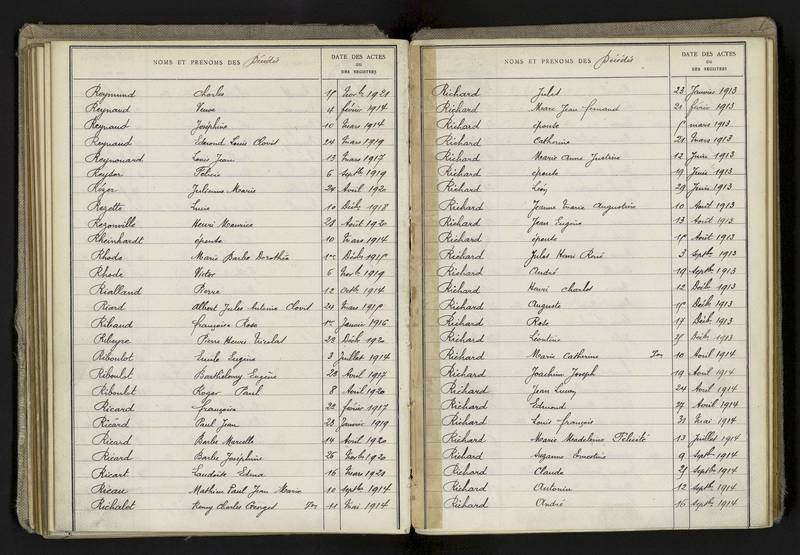 NOMS ET PRÉNOMS DES Décédés
DATE DES ACTES
OU
DES REGISTRES
Reymund Charles 17 Novbre 1921
Reynaud Veuve 4 février 1914
Reynaud Joséphine 10 Mars 1914
Reynaud Edmond Louis Clovis 24 Mars 1919
Reynouard Louis Jean 13 Mars 1917
Félicie 6 Septbre 1919
Julienne Marie 24 Avril 1920
Rezette 10 Décbre 1918
Rezonville Henri Maurice 28 Août 1920
Rheinhardt épouse 10 Mars 1914
Rhode Marie Barbe Dorothée 1er Décbre
Rhode Victor 6 Novbre 1919
Rialland Pierre 12 Octbre 1914
Riard Albert Jules Antoine Clovis 21 Mars
Ribaud françoise Rose 1er Janvier 1916
Ribeyre Pierre Henri Nicolas 22 Décbre 1920
Riboulot Emile Eugène 3 Juillet 1914
Riboulot Barthelemy Eugène 23 Avril 1917
Riboulot Roger Paul 8 Avril 1920
Ricard françoise 22 février 1917
Ricard Paul Jean 23 Janvier 1919
Ricard Barbe Marcelle 14 Avril 1920
Ricard Barbe Joséphine 26 Novbre 1920
Ricart Edma 16 Mars 1921
Ricau Mathieu Paul Jean Marie 10 Septbre 1914
Richalot Remy Charles Georges 11 Mai 1914
NOMS ET PRÉNOMS DES Décédés
DATE DES ACTES
OU
DES REGISTRES
Richard Jules 23 Janvier 1913
Richard Marc Jean fernand 21 février 1913
Richard épouse mars 1913
Richard Catherine 21 Mars 1913
Richard Marie Anne Justine 12 Juin 1913
Richard épouse 19 Juin 1913
Richard Léon 29 Juin 1913
Richard Jeanne Marie Augustine 10 Août 1913
Richard Jean Eugène 13 Août 1913
Richard épouse Août 1913
Richard Jules Henri René 3 Septbre 1913
Richard André 19 Septbre 1913
Richard Henri Charles 12 Décbre 1913
Richard Auguste Décbre 1913
Richard Rose 17 Décbre 1913
Richard Léontine Décbre 1913
Richard Marie Catherine 10 Avril 1914
Richard Joachim Joseph 19 Avril 1914
Richard Jean 24 Avril 1914
Richard Edmond 27 Avril 1914
Richard Louis françois 31 Mai 1914
Richard Marie Madeleine Félicité 13 Juillet 1914
Richard Suzanne Ernestine 9 Septbre 1914
Richard Claude Septbre 1914
Richard Antonin 12 Septbre 1914
Richard André 16 Septbre 1914